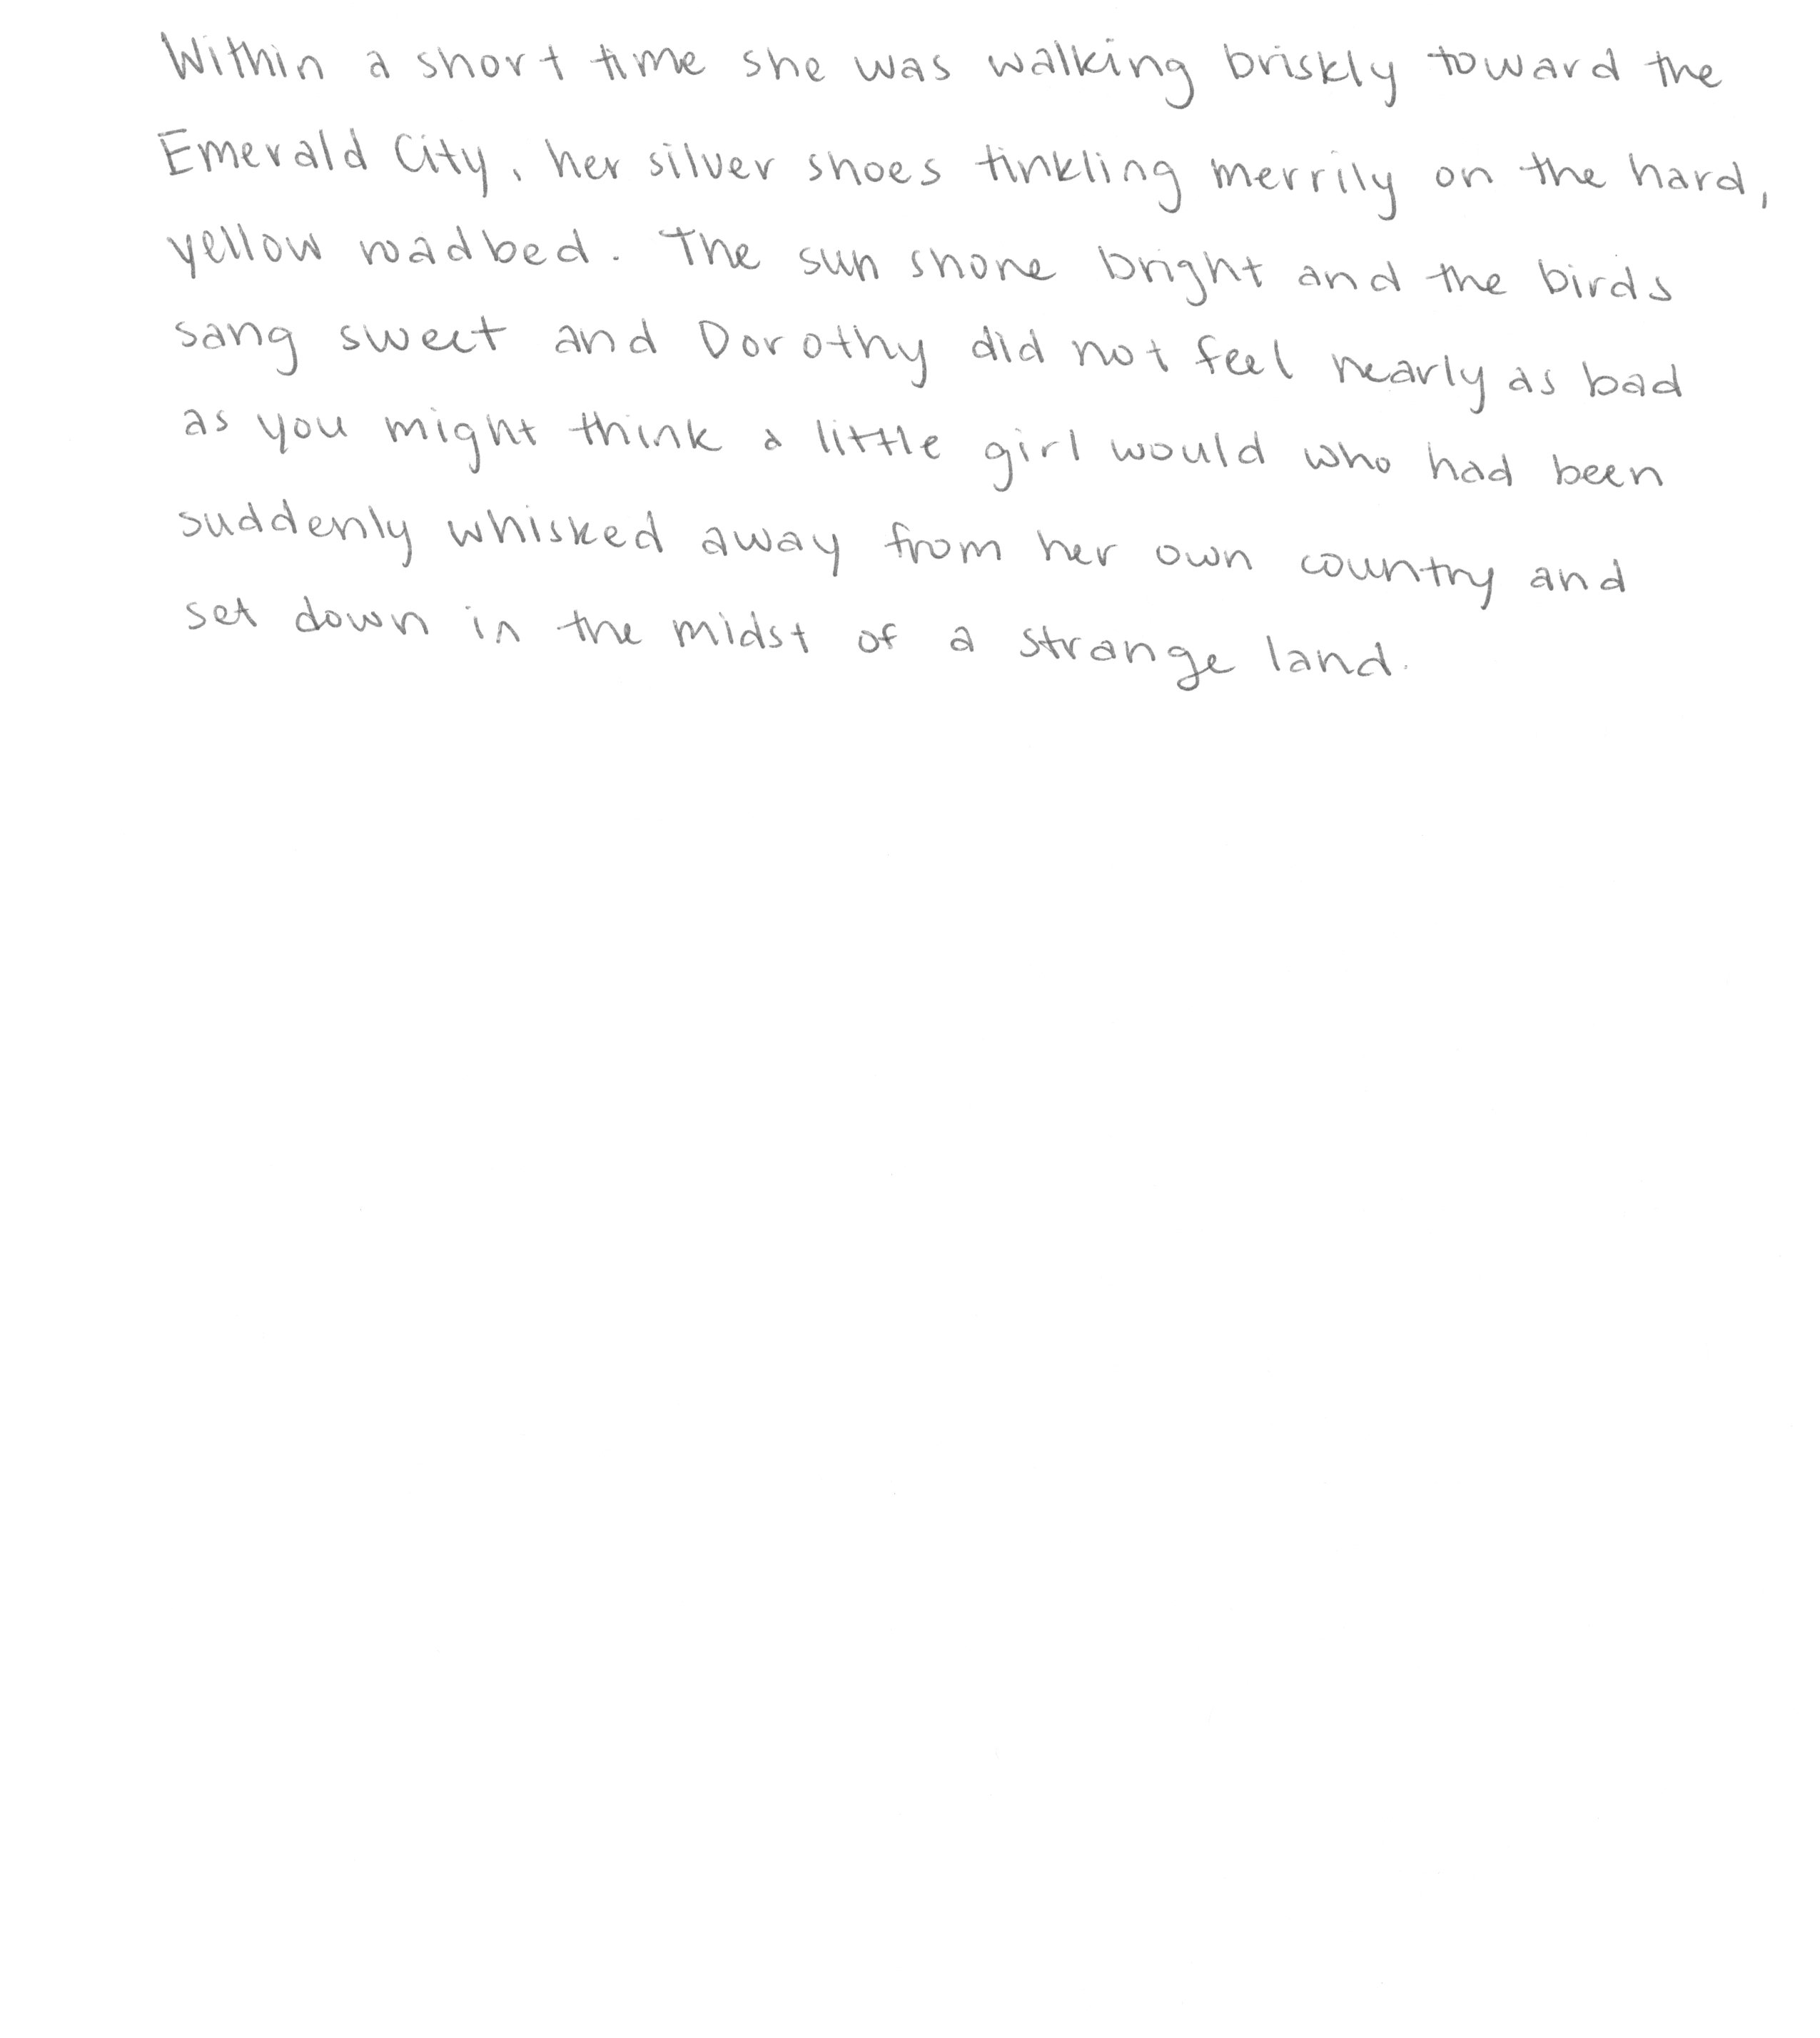 Within a short time she was walking briskly toward the
Emerald City, her silver shoes tinkling merrily on the hard,
yellow roadbed. The sun shone bright and the birds
sang sweet and Dorothy did not feel nearly as bad
as you might think a little girl would who had been
suddenly whisked away from her own country and
set down in the midst of a strange land.